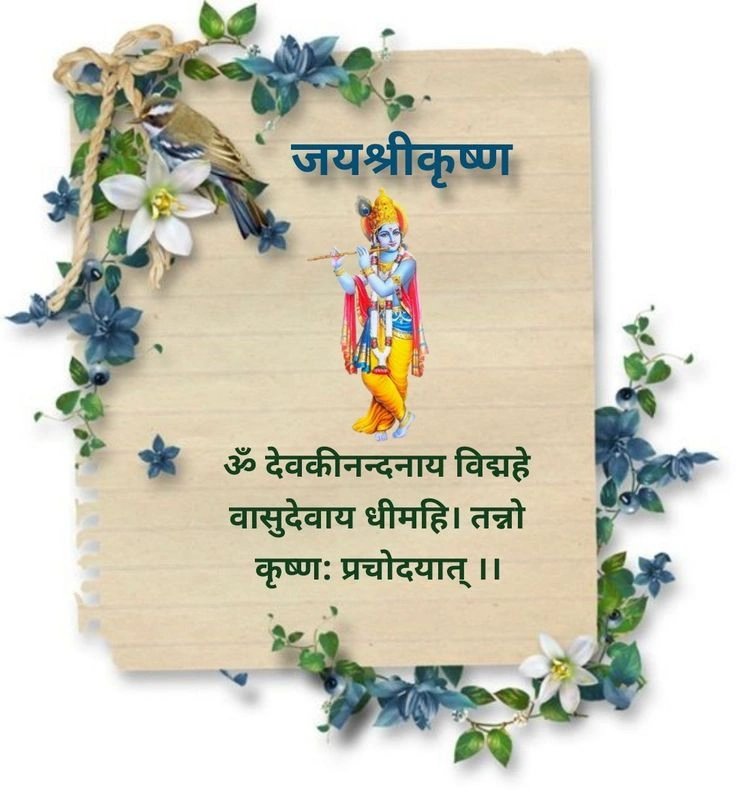 जयश्रीकृष्ण
ॐ देवकीनन्दनाय विद्महे
वासुदेवाय धीमहि। तन्नो
कृष्ण: प्रचोदयात् ।।